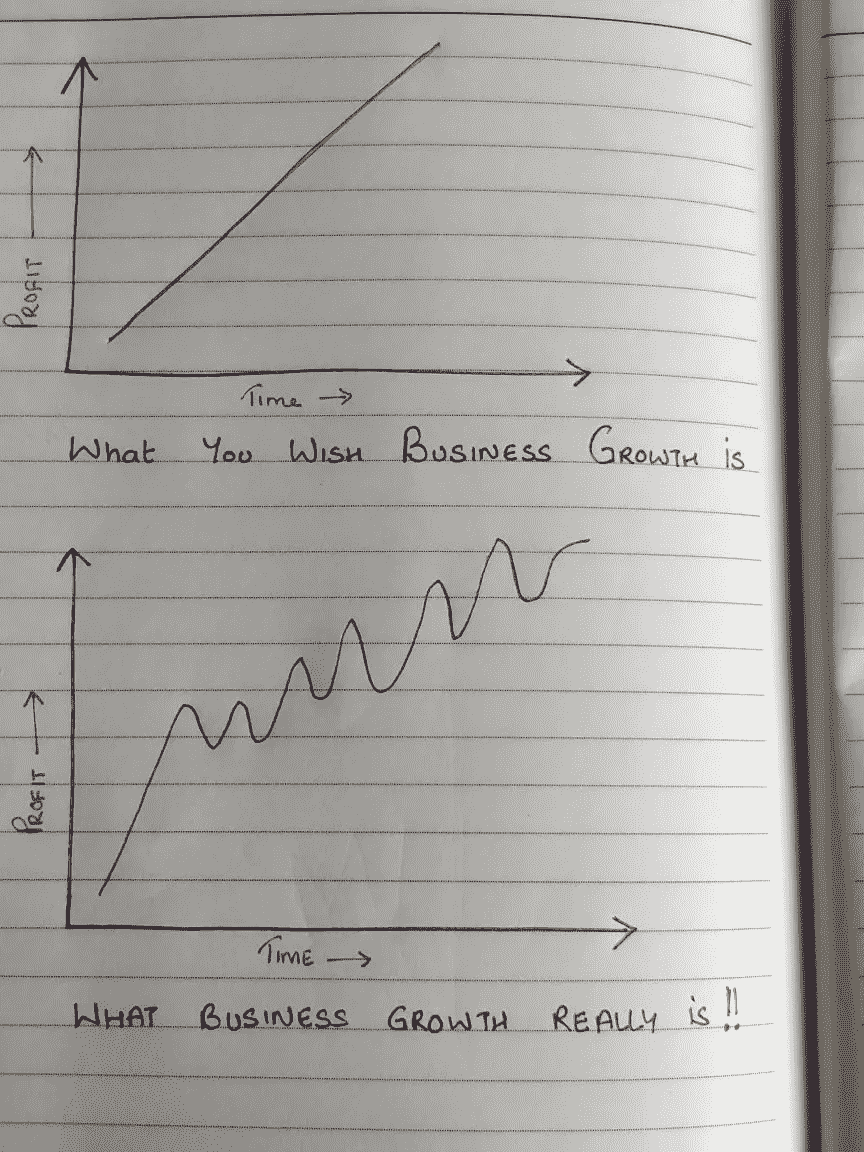 PROFIT →
Time →
What You WISH BUSINESS GROWTH is
PROFIT →
TIME →
WHAT BUSINESS GROWTH REALLY is!!